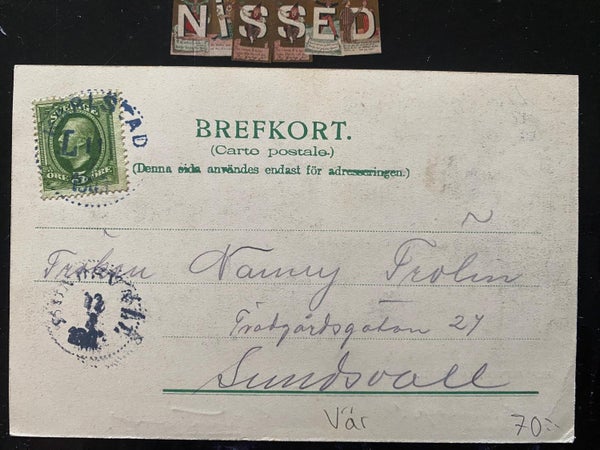 NISSED
SVERIGE
5
ÖRE ÖRE
BREFKORT.
(Carto postale.)
(Denna sida användes endast för adresseringen.)
Fröken Nanny Frolin
Trädgårdsgatan 27
Sundsvall
Vår
70:-